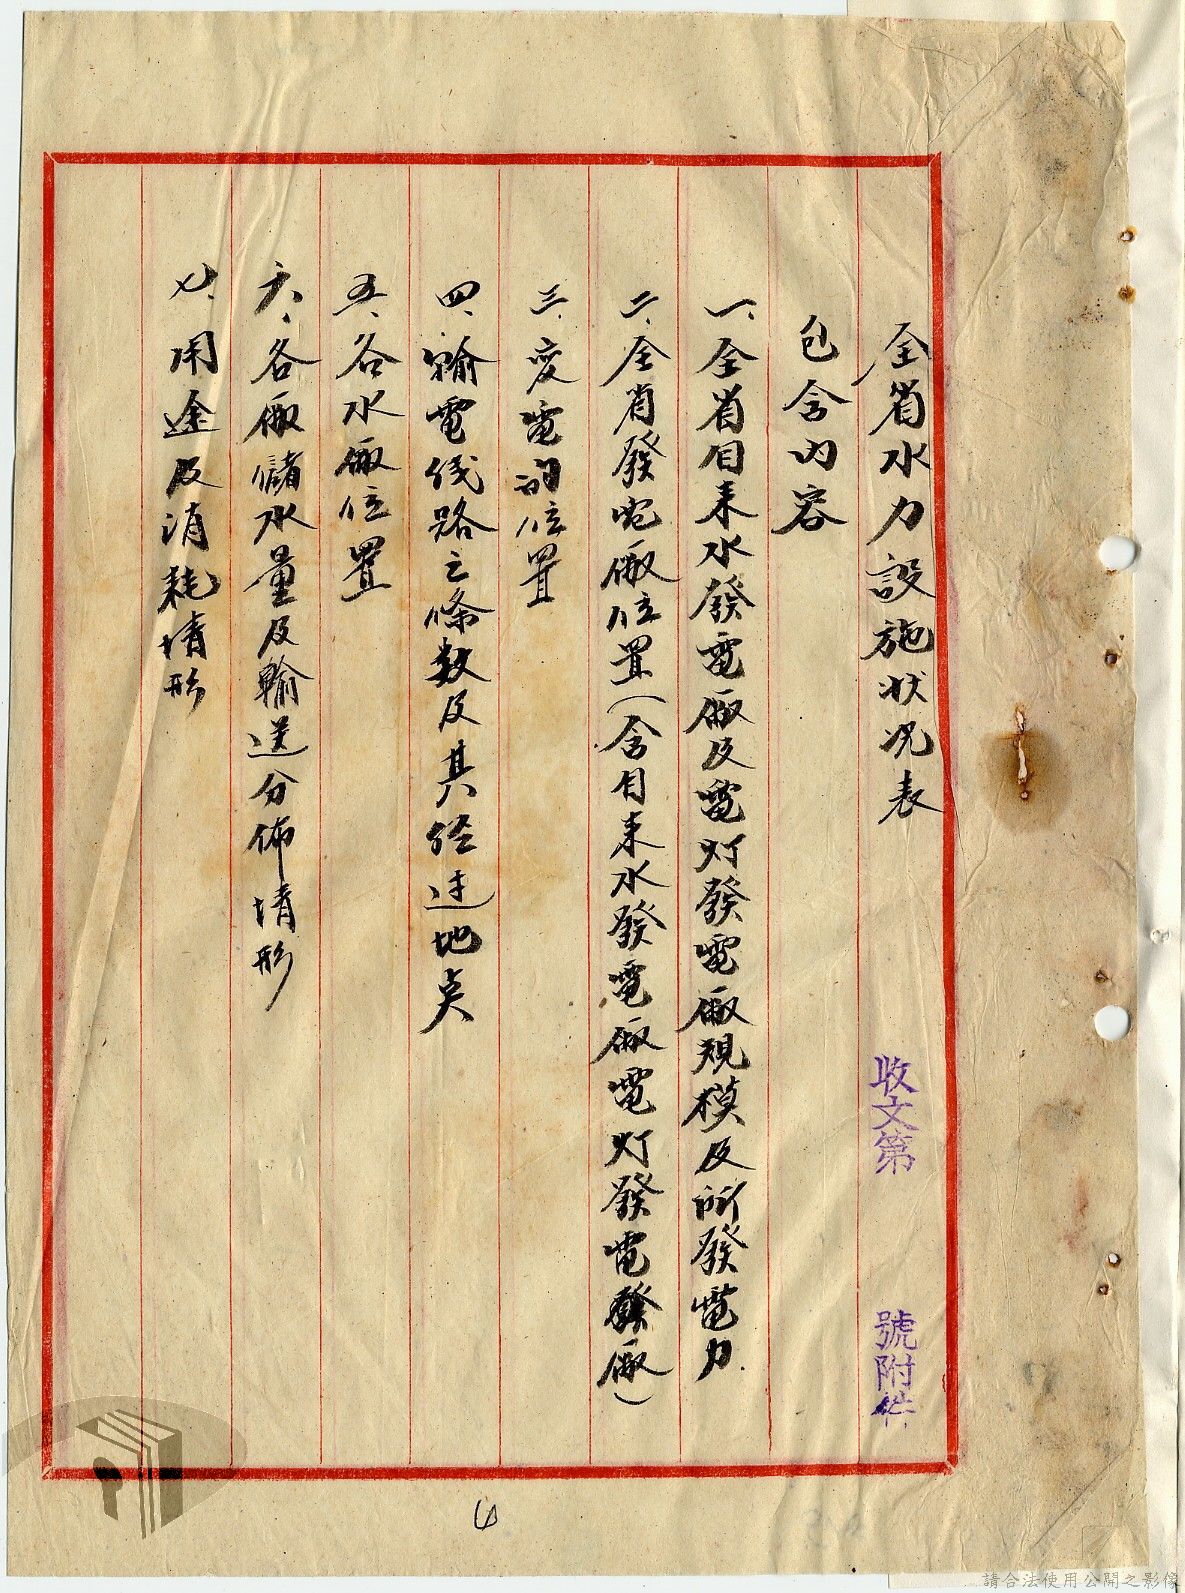 全省水力設施狀况表
收文第　　　號附件
包含内容
一、全省自来水發電廠及電灯發電廠規模及所發電力.
二、全省發电廠位置(含自来水發電廠電灯發電廠)
三、变電的位置
四、輸電线路之條数及其经过地点
五、各水廠位置
六、各廠儲水量及輸送分佈情形
七、用途及消耗情形
請合法使用公開之影像